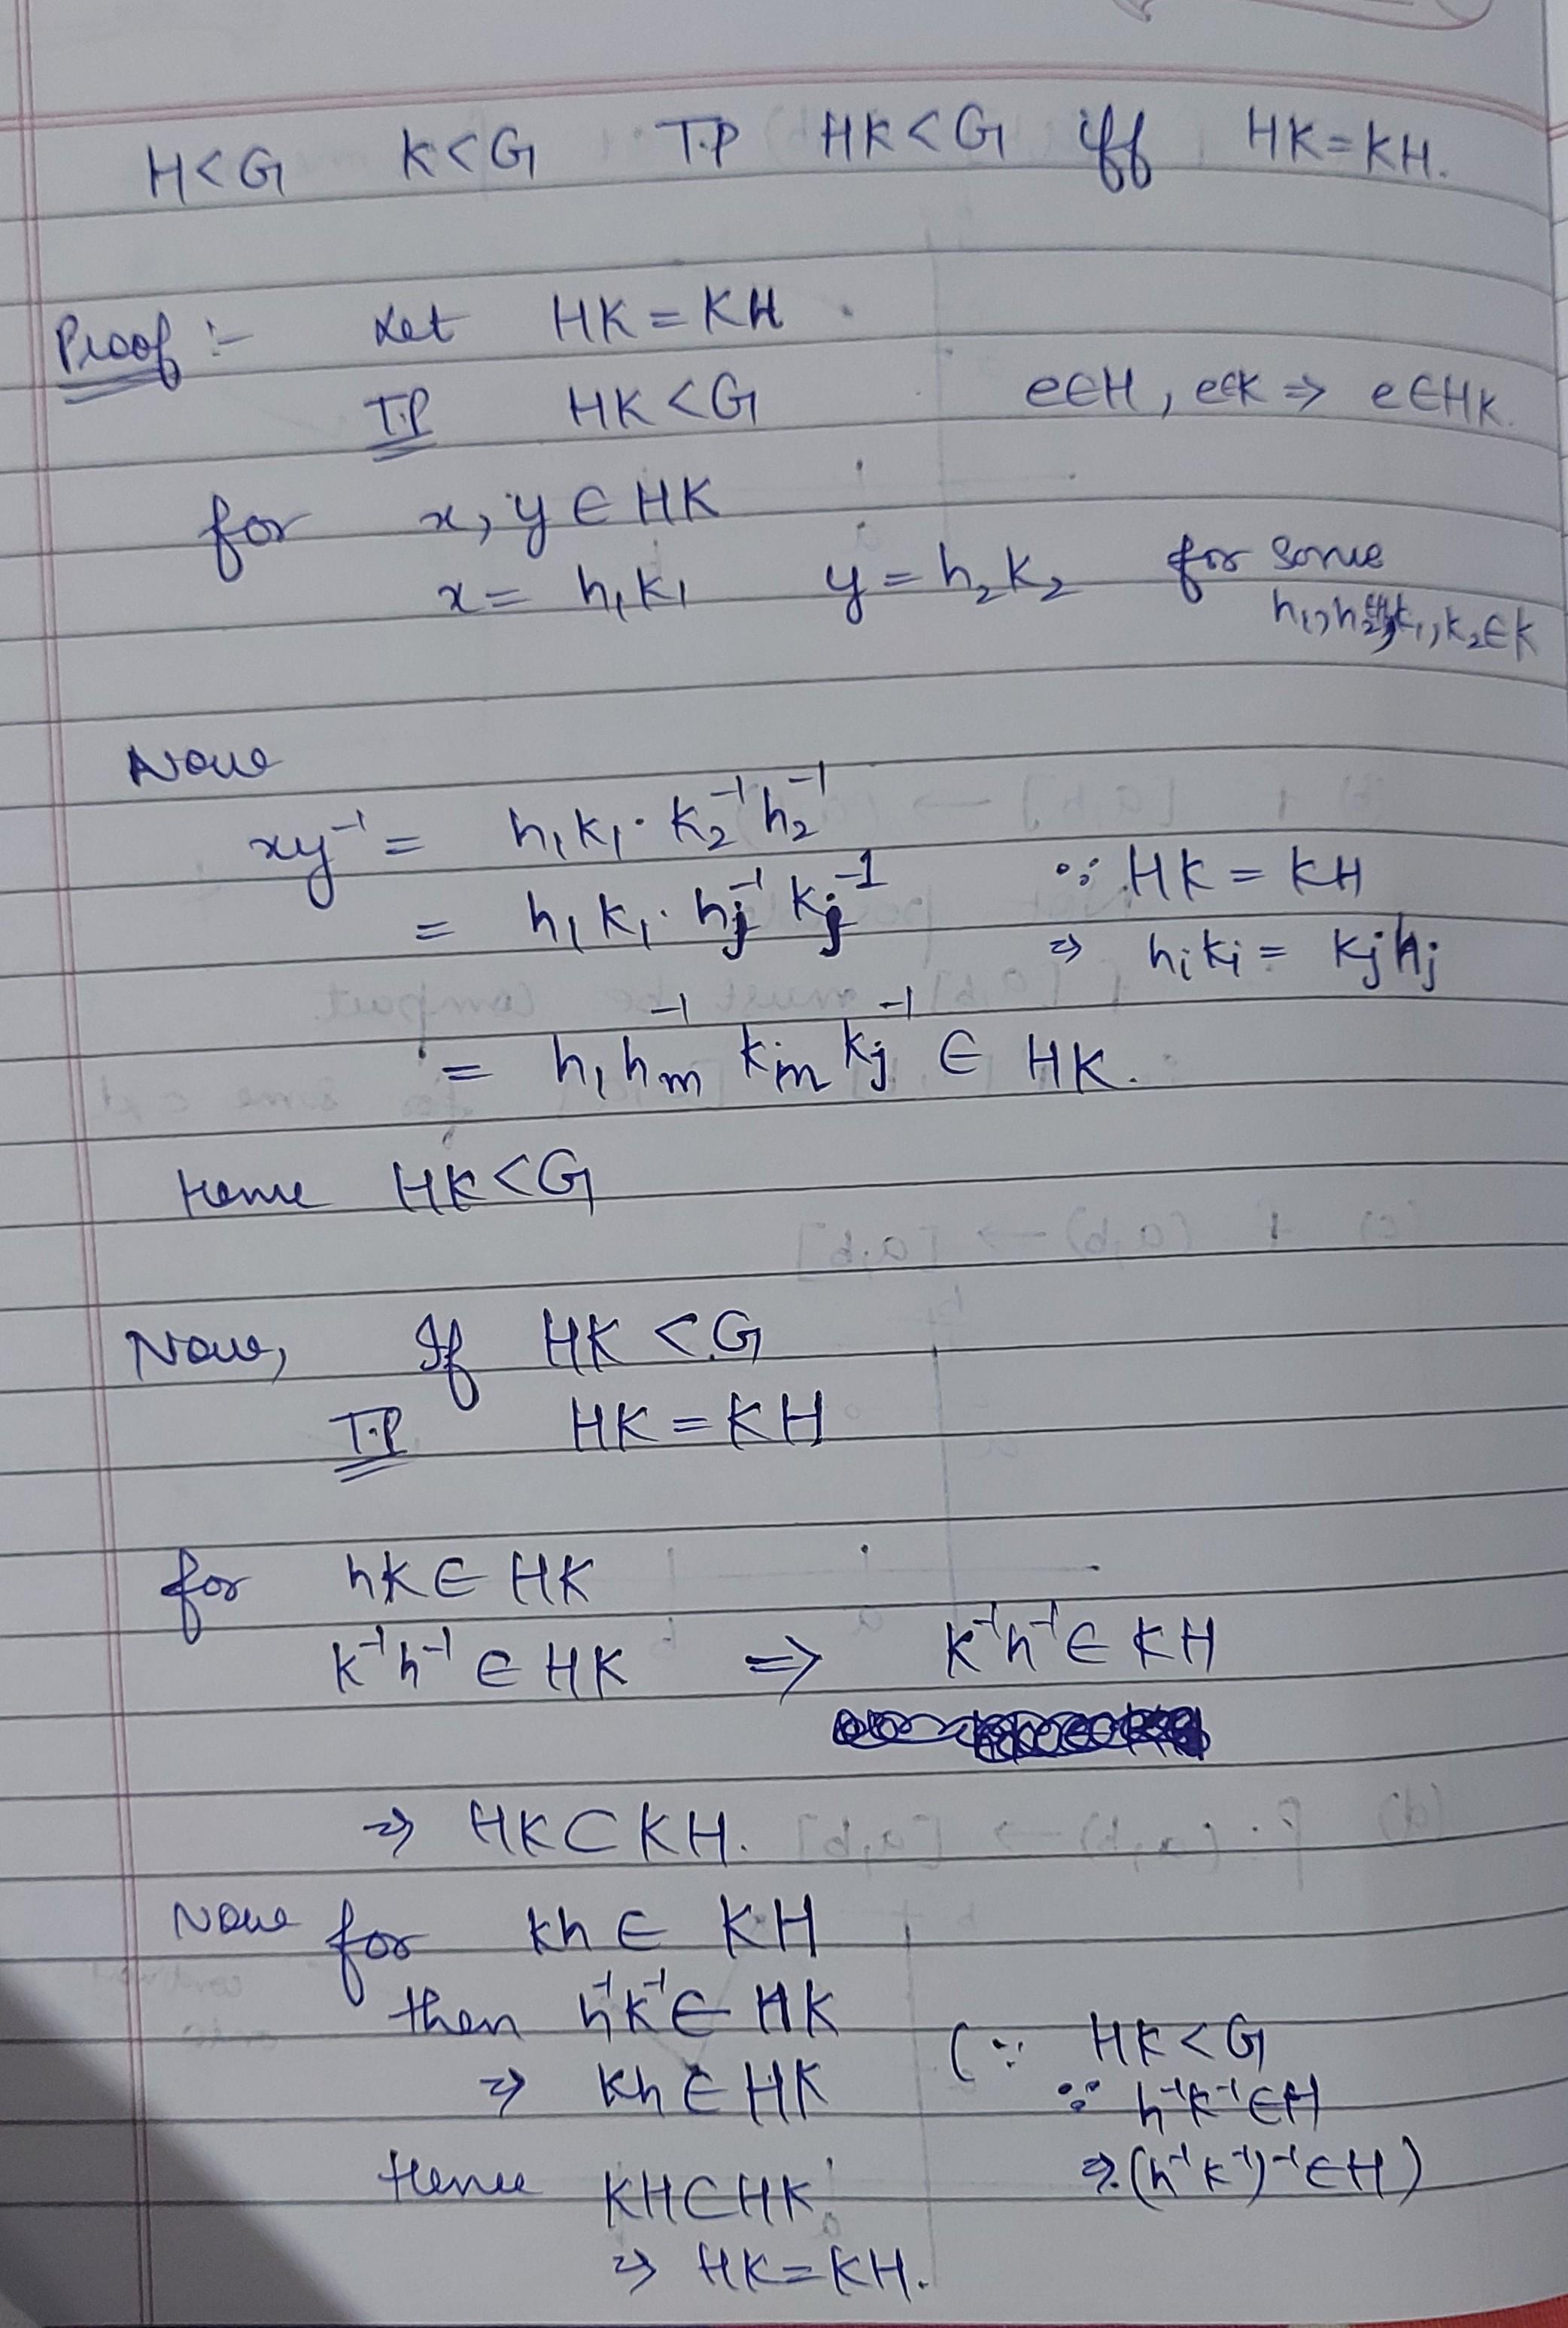 H<G K<G T.P HK<G iff HK=KH.
Proof :- Let HK = KH.
T.P HK<G e∈H, e∈K ⇒ e∈HK.
for x, y ∈ HK
x = h₁k₁ y = h₂k₂ for some
h₁, h₂∈H, k₁, k₂∈K
Now
xy⁻¹ = h₁k₁·k₂⁻¹h₂⁻¹
= h₁k₁·hⱼ⁻¹kⱼ⁻¹ ∵ HK = KH
⇒ hᵢkᵢ = kⱼhⱼ
= h₁hₘ⁻¹ kₘ kⱼ⁻¹ ∈ HK.
Hence HK<G
Now, If HK<G
T.P HK = KH
for hk ∈ HK
k⁻¹h⁻¹ ∈ HK ⇒ k⁻¹h⁻¹ ∈ KH
⇒ HK⊂KH.
Now for kh ∈ KH
then h⁻¹k⁻¹∈ HK (∵ HK<G
⇒ kh∈HK ∵ h⁻¹k⁻¹∈H
Hence KH⊂HK. ⇒(h⁻¹k⁻¹)⁻¹∈H)
⇒ HK=KH.